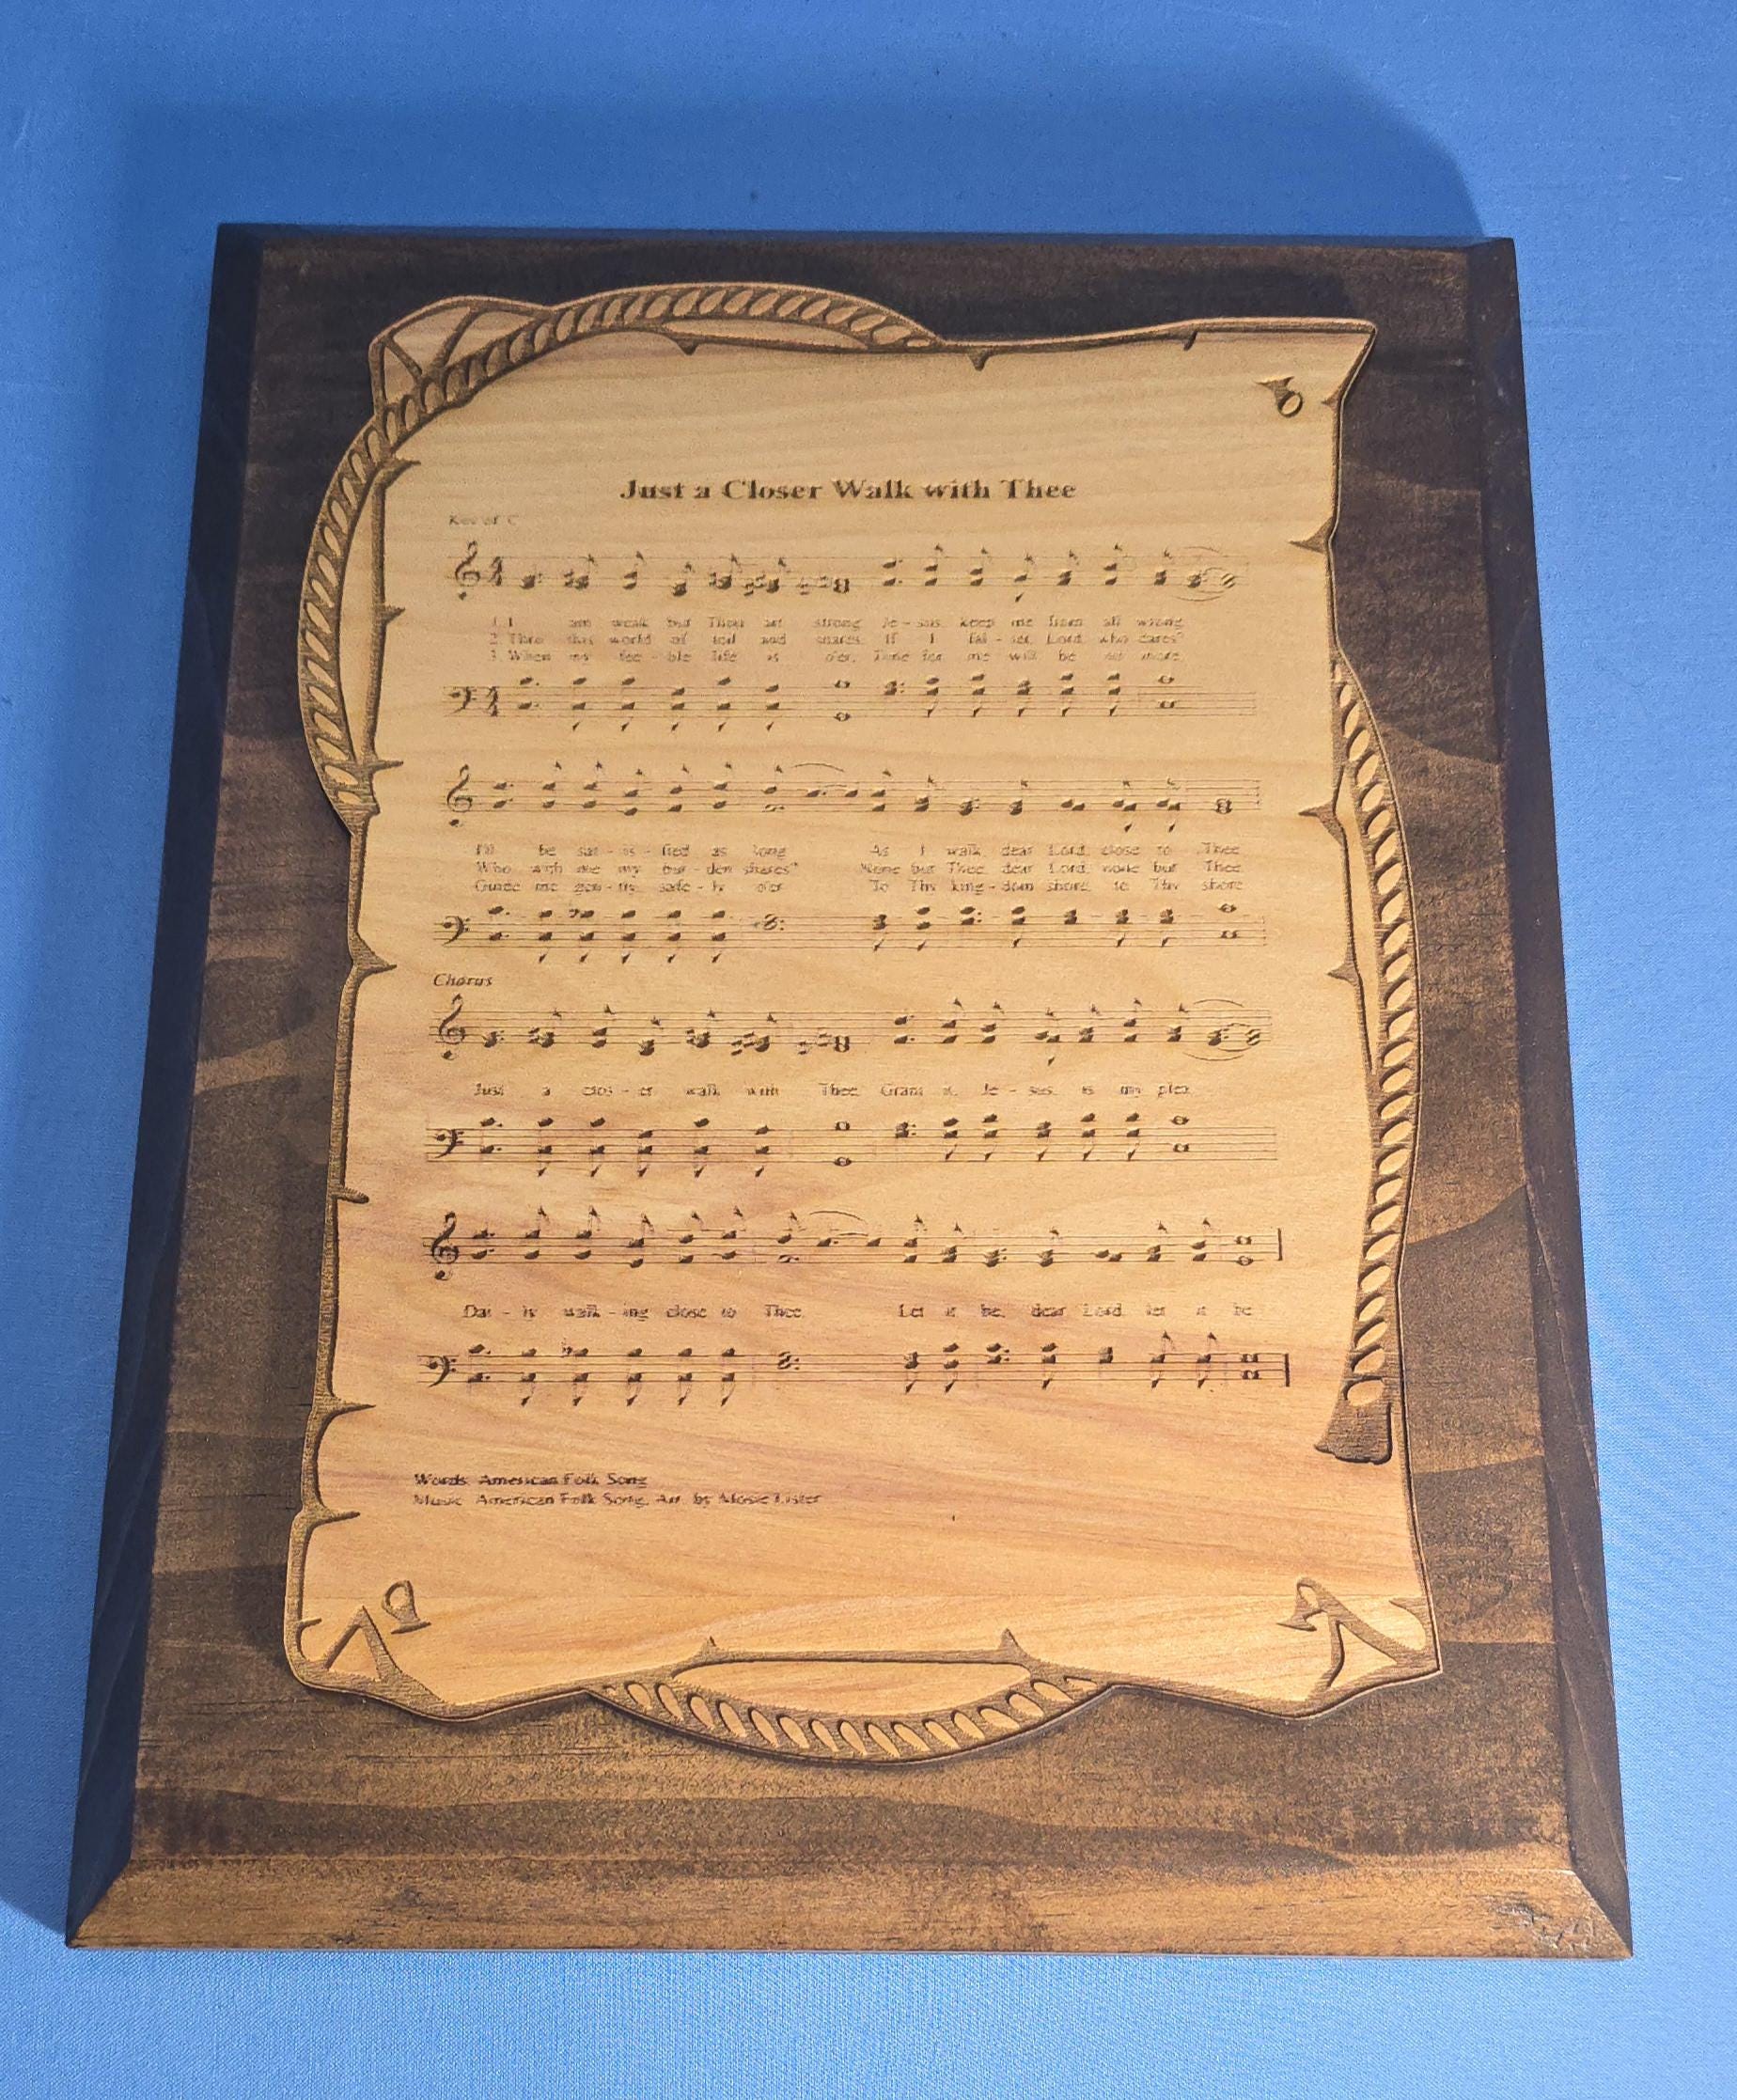 Just a Closer Walk with Thee
Key of C
1. I am weak but Thou art strong Je - sus, keep me from all wrong
2. Thro this world of toil and snares, If I fal - ter, Lord, who cares?
3. When my fee - ble life is o'er, Time for me will be no more
I'll be sat - is - fied as long As I walk, dear Lord, close to Thee
Who with me my bur - den shares? None but Thee, dear Lord, none but Thee
Guide me gen - tly, safe - ly o'er To Thy king - dom shore, to Thy shore
Chorus
Just a clos - er walk with Thee, Grant it, Je - sus, is my plea,
Dai - ly walk - ing close to Thee, Let it be, dear Lord, let it be
Words: American Folk Song
Music: American Folk Song, Arr. by Mosie Lister